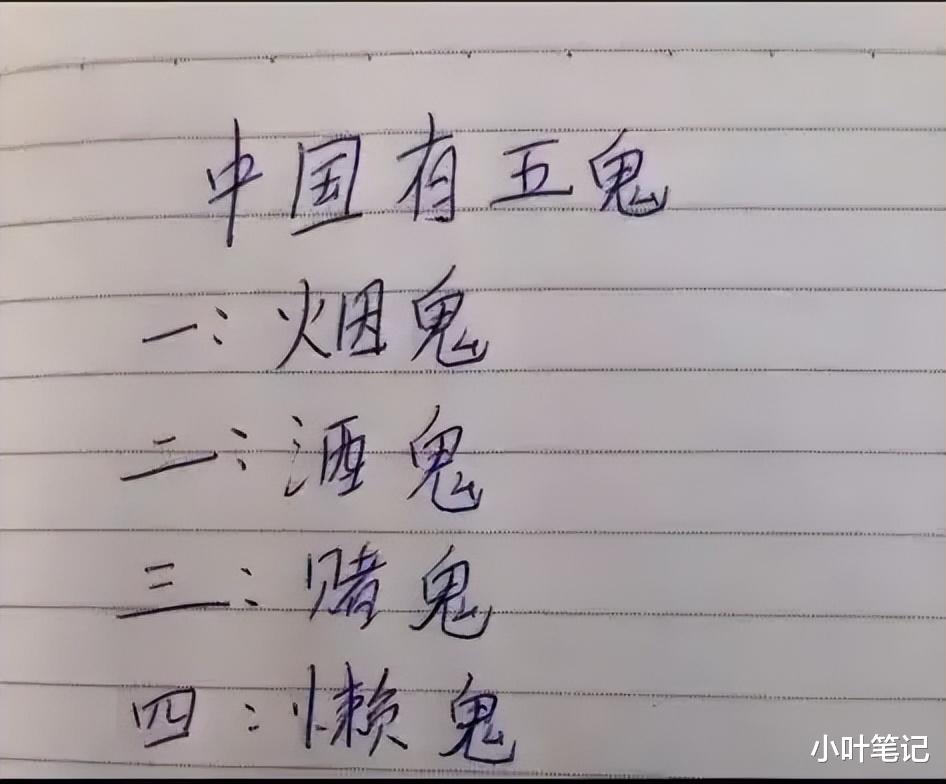 中国有五鬼
一：烟鬼
二：酒鬼
三：赌鬼
四：懒鬼
小叶笔记